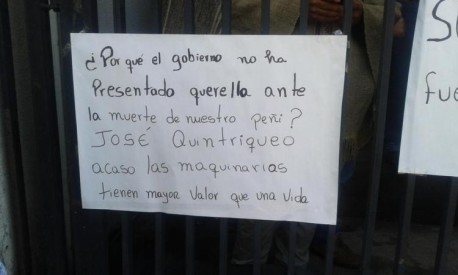 ¿Por qué el gobierno no ha
Presentado querella ante
la muerte de nuestro peñi?
JOSÉ QUINTRIQUEO
acaso las maquinarias
tienen mayor valor que una vida
S
fue